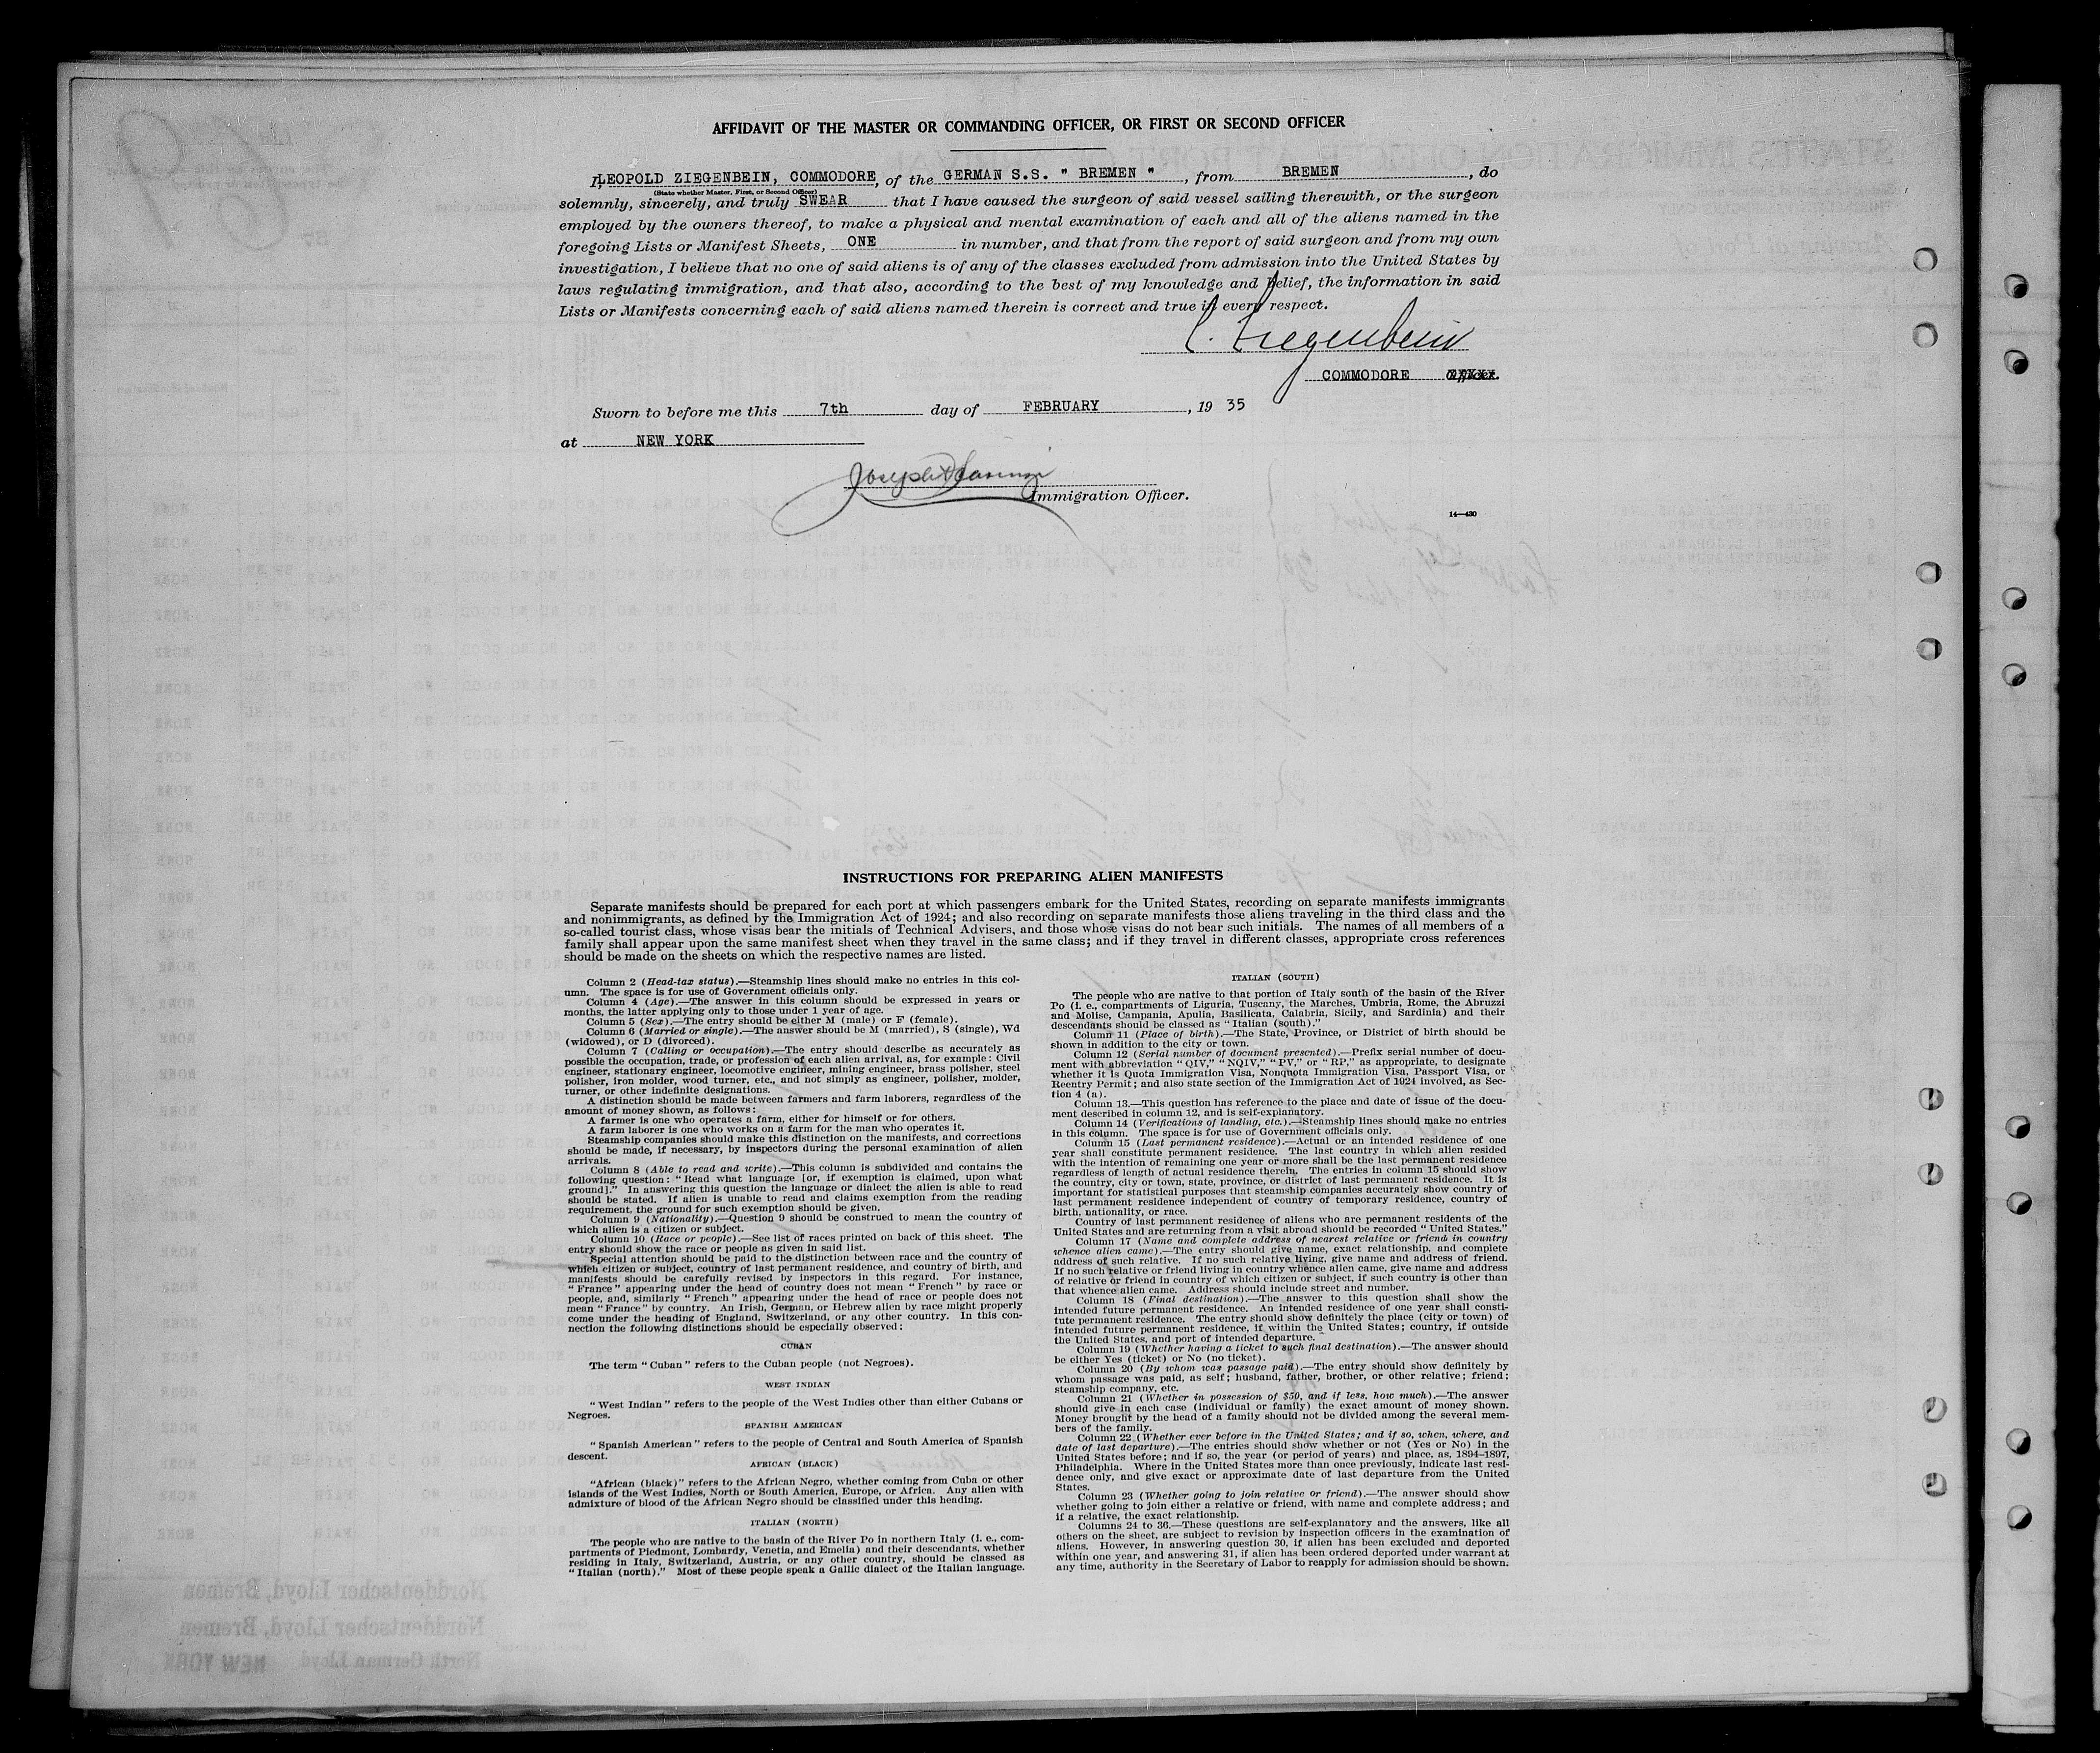 AFFIDAVIT OF THE MASTER OR COMMANDING OFFICER, OR FIRST OR SECOND OFFICER
I, LEOPOLD ZIEGENBEIN, COMMODORE, of the GERMAN S.S. " BREMEN ", from BREMEN, do
(State whether Master, First, or Second Officer)
solemnly, sincerely, and truly SWEAR that I have caused the surgeon of said vessel sailing therewith, or the surgeon
employed by the owners thereof, to make a physical and mental examination of each and all of the aliens named in the
foregoing Lists or Manifest Sheets, ONE in number, and that from the report of said surgeon and from my own
investigation, I believe that no one of said aliens is of any of the classes excluded from admission into the United States by
laws regulating immigration, and that also, according to the best of my knowledge and belief, the information in said
Lists or Manifests concerning each of said aliens named therein is correct and true in every respect.
L. Ziegenbein
COMMODORE Officer.
Sworn to before me this 7th day of FEBRUARY, 19 35
at NEW YORK
Joseph
Immigration Officer.
14—430
INSTRUCTIONS FOR PREPARING ALIEN MANIFESTS
Separate manifests should be prepared for each port at which passengers embark for the United States, recording on separate manifests immigrants
and nonimmigrants, as defined by the Immigration Act of 1924; and also recording on separate manifests those aliens traveling in the third class and the
so-called tourist class, whose visas bear the initials of Technical Advisers, and those whose visas do not bear such initials. The names of all members of a
family shall appear upon the same manifest sheet when they travel in the same class; and if they travel in different classes, appropriate cross references
should be made on the sheets on which the respective names are listed.
Column 2 (Head-tax status).—Steamship lines should make no entries in this col-
umn. The space is for use of Government officials only.
Column 4 (Age).—The answer in this column should be expressed in years or
months, the latter applying only to those under 1 year of age.
Column 5 (Sex).—The entry should be either M (male) or F (female).
Column 6 (Married or single).—The answer should be M (married), S (single), Wd
(widowed), or D (divorced).
Column 7 (Calling or occupation).—The entry should describe as accurately as
possible the occupation, trade, or profession of each alien arrival, as, for example: Civil
engineer, stationary engineer, locomotive engineer, mining engineer, brass polisher, steel
polisher, iron molder, wood turner, etc., and not simply as engineer, polisher, molder,
turner, or other indefinite designations.
A distinction should be made between farmers and farm laborers, regardless of the
amount of money shown, as follows:
A farmer is one who operates a farm, either for himself or for others.
A farm laborer is one who works on a farm for the man who operates it.
Steamship companies should make this distinction on the manifests, and corrections
should be made, if necessary, by inspectors during the personal examination of alien
arrivals.
Column 8 (Able to read and write).—This column is subdivided and contains the
following question: "Read what language [or, if exemption is claimed, upon what
ground]." In answering this question the language or dialect the alien is able to read
should be stated. If alien is unable to read and claims exemption from the reading
requirement, the ground for such exemption should be given.
Column 9 (Nationality).—Question 9 should be construed to mean the country of
which alien is a citizen or subject.
Column 10 (Race or people).—See list of races printed on back of this sheet. The
entry should show the race or people as given in said list.
Special attention should be paid to the distinction between race and the country of
which citizen or subject, country of last permanent residence, and country of birth, and
manifests should be carefully revised by inspectors in this regard. For instance,
"France" appearing under the head of country does not mean "French" by race or
people, and, similarly "French" appearing under the head of race or people does not
mean "France" by country. An Irish, German, or Hebrew alien by race might properly
come under the heading of England, Switzerland, or any other country. In this con-
nection the following distinctions should be especially observed:
CUBAN
The term "Cuban" refers to the Cuban people (not Negroes).
WEST INDIAN
"West Indian" refers to the people of the West Indies other than either Cubans or
Negroes.
SPANISH AMERICAN
"Spanish American" refers to the people of Central and South America of Spanish
descent.
AFRICAN (BLACK)
"African (black)" refers to the African Negro, whether coming from Cuba or other
islands of the West Indies, North or South America, Europe, or Africa. Any alien with
admixture of blood of the African Negro should be classified under this heading.
ITALIAN (NORTH)
The people who are native to the basin of the River Po in northern Italy (i. e., com-
partments of Piedmont, Lombardy, Venetia, and Emelia) and their descendants, whether
residing in Italy, Switzerland, Austria, or any other country, should be classed as
"Italian (north)." Most of these people speak a Gallic dialect of the Italian language.
ITALIAN (SOUTH)
The people who are native to that portion of Italy south of the basin of the River
Po (i. e., compartments of Liguria, Tuscany, the Marches, Umbria, Rome, the Abruzzi
and Molise, Campania, Apulia, Basilicata, Calabria, Sicily, and Sardinia) and their
descendants should be classed as "Italian (south)."
Column 11 (Place of birth).—The State, Province, or District of birth should be
shown in addition to the city or town.
Column 12 (Serial number of document presented).—Prefix serial number of docu-
ment with abbreviation "QIV," "NQIV," "PV," or "RP," as appropriate, to designate
whether it is Quota Immigration Visa, Nonquota Immigration Visa, Passport Visa, or
Reentry Permit; and also state section of the Immigration Act of 1924 involved, as Sec-
tion 4 (a).
Column 13.—This question has reference to the place and date of issue of the docu-
ment described in column 12, and is self-explanatory.
Column 14 (Verifications of landing, etc.).—Steamship lines should make no entries
in this column. The space is for use of Government officials only.
Column 15 (Last permanent residence).—Actual or an intended residence of one
year shall constitute permanent residence. The last country in which alien resided
with the intention of remaining one year or more shall be the last permanent residence
regardless of length of actual residence therein. The entries in column 15 should show
the country, city or town, state, province, or district of last permanent residence. It is
important for statistical purposes that steamship companies accurately show country of
last permanent residence independent of country of temporary residence, country of
birth, nationality, or race.
Country of last permanent residence of aliens who are permanent residents of the
United States and are returning from a visit abroad should be recorded "United States."
Column 17 (Name and complete address of nearest relative or friend in country
whence alien came).—The entry should give name, exact relationship, and complete
address of such relative. If no such relative living, give name and address of friend.
If no such relative or friend living in country whence alien came, give name and address
of relative or friend in country of which citizen or subject, if such country is other than
that whence alien came. Address should include street and number.
Column 18 (Final destination).—The answer to this question shall show the
intended future permanent residence. An intended residence of one year shall consti-
tute permanent residence. The entry should show definitely the place (city or town) of
intended future permanent residence, if within the United States; country, if outside
the United States, and port of intended departure.
Column 19 (Whether having a ticket to such final destination).—The answer should
be either Yes (ticket) or No (no ticket).
Column 20 (By whom was passage paid).—The entry should show definitely by
whom passage was paid, as self; husband, father, brother, or other relative; friend;
steamship company, etc.
Column 21 (Whether in possession of $50, and if less, how much).—The answer
should give in each case (individual or family) the exact amount of money shown.
Money brought by the head of a family should not be divided among the several mem-
bers of the family.
Column 22 (Whether ever before in the United States; and if so, when, where, and
date of last departure).—The entries should show whether or not (Yes or No) in the
United States before; and if so, the year (or period of years) and place, as, 1894–1897,
Philadelphia. Where in the United States more than once previously, indicate last resi-
dence only, and give exact or approximate date of last departure from the United
States.
Column 23 (Whether going to join relative or friend).—The answer should show
whether going to join either a relative or friend, with name and complete address; and
if a relative, the exact relationship.
Columns 24 to 36.—These questions are self-explanatory and the answers, like all
others on the sheet, are subject to revision by inspection officers in the examination of
aliens. However, in answering question 30, if alien has been excluded and deported
within one year, and answering 31, if alien has been ordered deported under warrant at
any time, authority in the Secretary of Labor to reapply for admission should be shown.
Norddeutscher Lloyd, Bremen
Norddeutscher Lloyd, Bremen
North German Lloyd NEW YORK